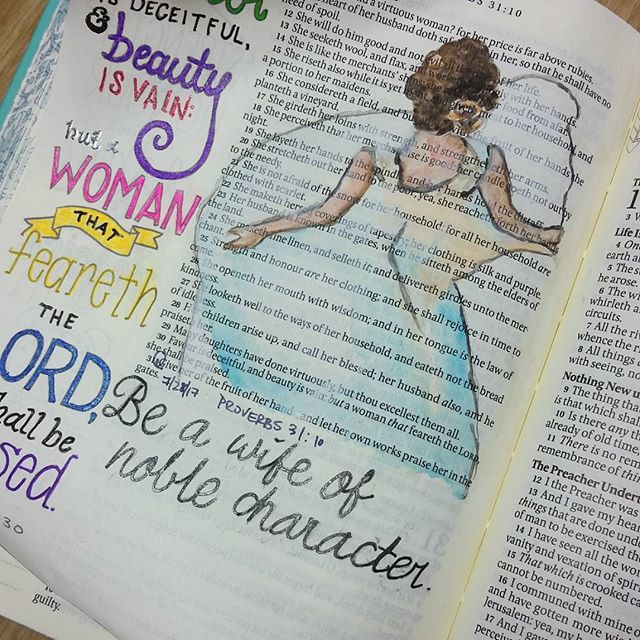 IS DECEITFUL,
&
beauty
IS VAIN:
but a
WOMAN
THAT
feareth
THE
ORD,
hall be
sed.
30
BS 31:10
a virtuous woman? for her price is far above rubies.
heart of her husband doth in her, so that he shall have no
need of spoil.
12 She will do him good and not her life.
13 She seeketh wool, and flax, with her hands.
14 She is like the merchants' food from afar.
15 She riseth also while it is to her household, and
a portion to her maidens.
16 She considereth a field, and of her hands she
planteth a vineyard.
17 She girdeth her loins with strength, and strengtheneth her arms.
18 She perceiveth that her is good: her not out by
night.
19 She layeth her hands to the and her hands
20 She stretcheth out her the poor; yea, she reacheth forth her hands
to the needy.
21 She is not afraid of the snow for her household: for all her household are
clothed with scarlet.
22 She maketh coverings of tapestry; her clothing is silk and purple.
23 Her husband is known in the gates, when he sitteth among the elders of
the land.
24 She maketh fine linen, and selleth it; and delivereth girdles unto the mer-
chant.
25 Strength and honour are her clothing; and she shall rejoice in time to
come.
26 She openeth her mouth with wisdom; and in her tongue is the law of
kindness.
27 She looketh well to the ways of her household, and eateth not the bread
of idle
28 children arise up, and call her blessed; her husband also, and he
praiseth her.
29 Many daughters have done virtuously, but thou excellest them all.
30 Fav is deceitful, and beauty is vain: but a woman that feareth the LORD,
she shall be praised.
31 Give her of the fruit of her hands; and let her own works praise her in the
gates.
PROVERBS 31:10
Be a wife of
noble character.
Life Is
earth a
he arose.
6 The w
whirleth a
circuits.
7 All the r
whence the r
8 All things
with seeing, no
Nothing New u
9 The thing tha
is that which shall
10 Is there any t
already of old time,
11 There is no re
remembrance of
The Preacher Under
12 I the Preacher was
13 And I gave my hea
things that are done und
of man to be exercised th
14 I have seen all the wo
vanity and vexation of spirit
15 That which is crooked ca
cannot be numbered.
16 I communed with mine o
and have gotten more wis
Jerusalem: yea,
17 And I ga
perceiv
guilty.